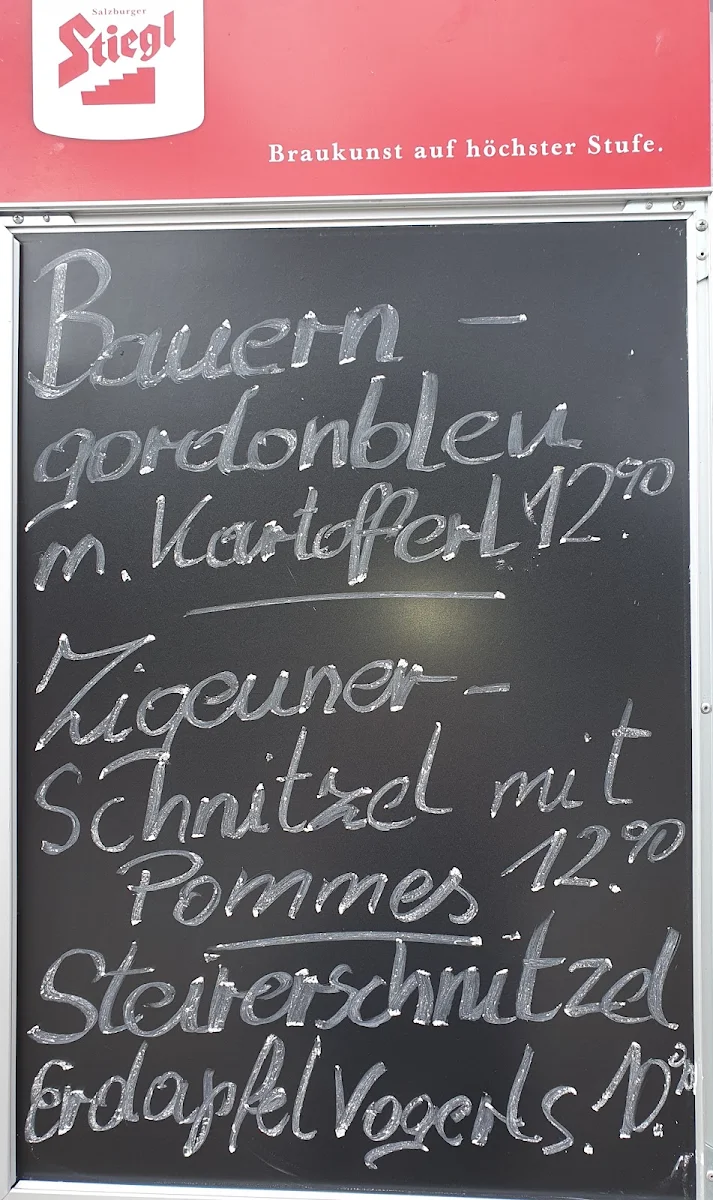 Salzburger
Stiegl
Braukunst auf höchster Stufe.
Bauern -
gordonbleu
m. Kartofferl 12.90
Zigeuner -
Schnitzel mit
Pommes 12.90
Steirerschnitzel
Erdapfel Vogerls. 10.90